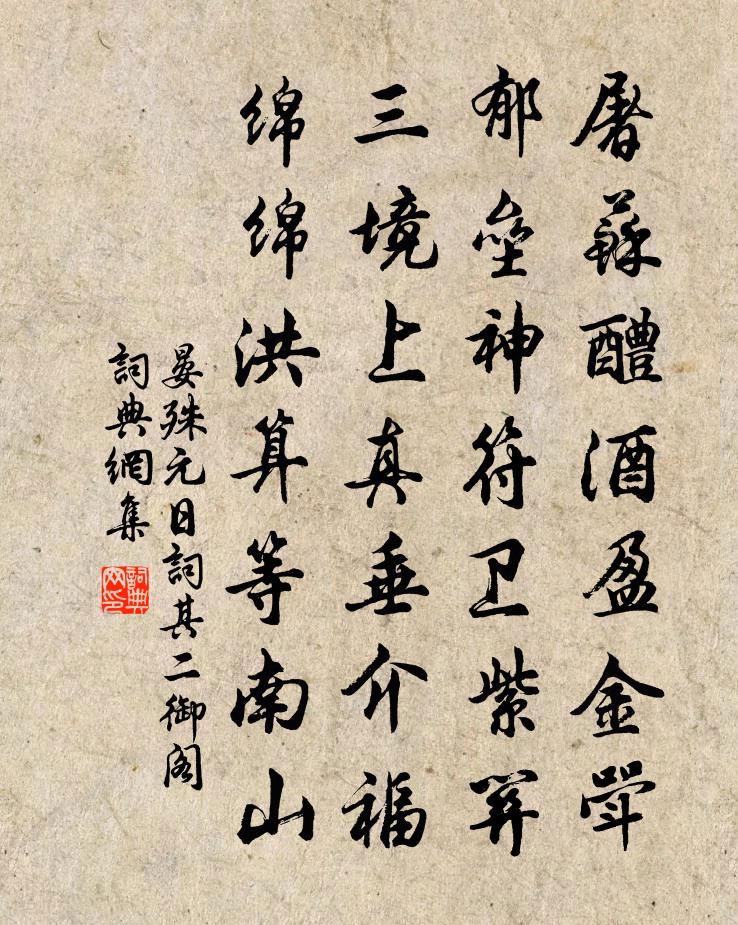 屠蘇醴酒盈金斝
郁垒神符卫紫關
三境上真垂介福
绵绵洪算等南山
晏殊元日詞其二御阁
詞典網集
詞典网印